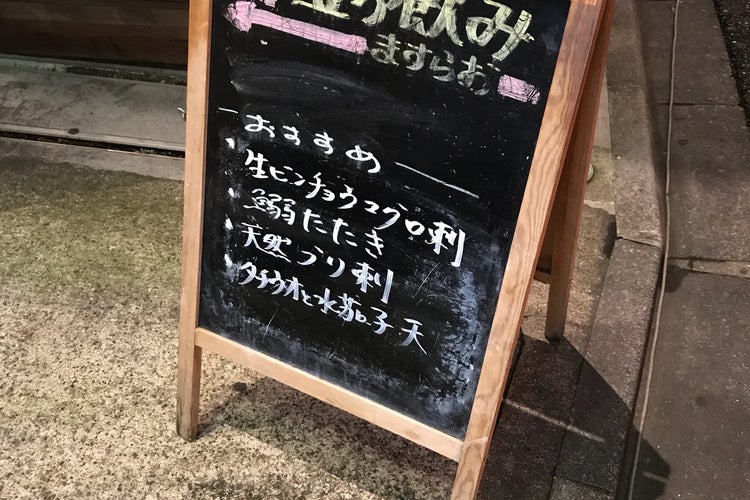 立ち飲み
ますらお
おすすめ
・生ビンチョウマグロ刺
・鰯たたき
・天然ブリ刺
・タチウオと水茄子天